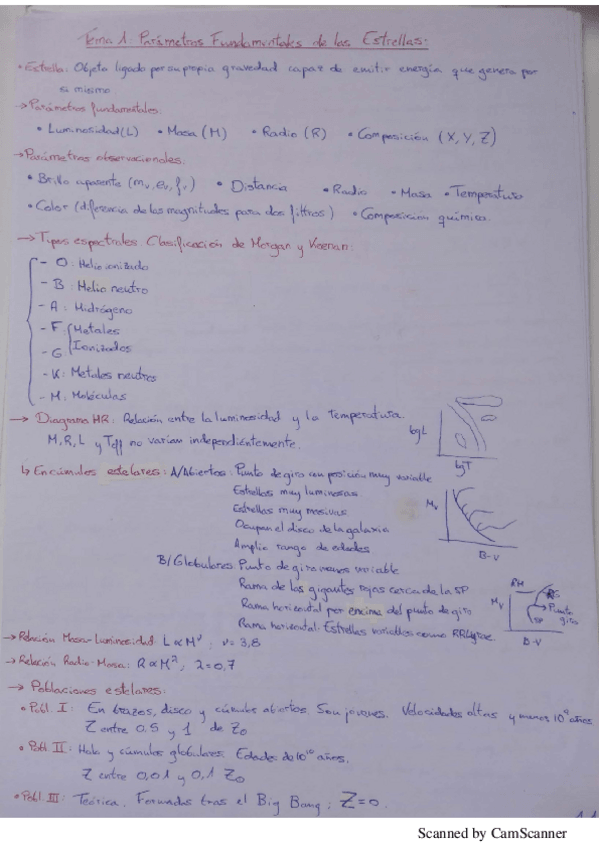 Tema 1: Parámetros Fundamentales de las Estrellas:
• Estrella: Objeto ligado por su propia gravedad capaz de emitir energía que genera por
si mismo
→ Parámetros fundamentales:
• Luminosidad (L) • Masa (M) • Radio (R) • Composición (X, Y, Z)
→ Parámetros observacionales:
• Brillo aparente (mᵥ, eᵥ, fᵥ) • Distancia • Radio • Masa • Temperatura
• Color (diferencia de las magnitudes para dos filtros) • Composición química.
→ Tipos espectrales. Clasificación de Morgan y Keenan:
- O: Helio ionizado
- B: Helio neutro
- A: Hidrógeno
- F: Metales
- G: Ionizados
- K: Metales neutros
- M: Moléculas
→ Diagrama HR: Relación entre la luminosidad y la temperatura.
M, R, L y Teff no varian independientemente.
log L
log T
↳ En cúmulos estelares: A/Abiertos: Punto de giro con posición muy variable
Estrellas muy luminosas
Estrellas muy masivas
Ocupan el disco de la galaxia
Amplio rango de edades
Mᵥ
B-V
B/Globulares: Punto de giro menos variable
Rama de las gigantes rojas cerca de la SP
Rama horizontal por encima del punto de giro
Rama horizontal: Estrellas variables como RR Lyrae
Mᵥ
RH
RG
Punto
giro
SP
B-V
→ Relación Masa-Luminosidad: L ∝ Mᵛ, ν = 3,8
→ Relación Radio-Masa: R ∝ Mᶻ; 2 = 0,7
→ Poblaciones estelares:
• Pobl. I: En brazos, disco y cúmulos abiertos. Son jovenes. Velocidades altas y menos 10⁹ años
Z entre 0,5 y 1 de Z₀
• Pobl. II: Halo y cúmulos globulares. Edades de 10¹⁰ años.
Z entre 0,01 y 0,1 Z₀
• Pobl. III: Teórica. Formadas tras el Big Bang; Z = 0.
Scanned by CamScanner